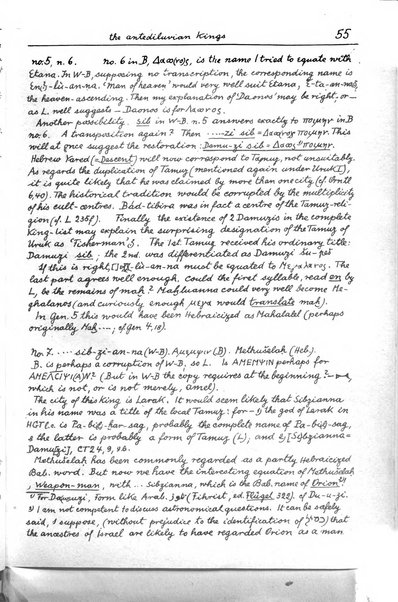 the antediluvian kings 55
no. 5, n. 6. no. 6 in B, Δαω(νο)ς, is the name I tried to equate with
Etana. In W-B, supposing no transcription, the corresponding name is
-an-na. 'Man of heaven' would very well suit Etana,
the heaven-ascending. Then my explanation of 'Daonos' may be right, or—
as L. well suggests — Daonos is for
Another possibility. sib in W-B n. 5 answers exactly to ποιμην in B
no. 6. A transposition again? Then ·····zi sib = ποιμην. This
will at once suggest the restoration: Dumu-zi sib = ποιμην.
Hebrew Yared (= Descent) will now correspond to Tamuz, not unsuitably.
As regards the duplication of Tamuz (mentioned again under Uruk I),
it is quite likely that he was claimed by more than one city (cf
6,40). The historical tradition would be corrupted by the multiplicity
of his cult-centres. Bad-tibira was in fact a centre of the Tamuz-reli-
gion (cf. L 235f). Finally the existence of 2 Damuzis in the complete
king-list may explain the surprising designation of the Tamuz of
Uruk as 'Fisherman'. The 1st Tamuz received his ordinary title:
Damuzi sib, the 2nd. was differentiated as Damuzi
If this is right, -an-na must be equated to The
last part agrees well enough. Could the first syllable, read en by
L, be the remains of mah? Mahluanna could very well become Me-
ghalanos (and curiously enough μεγα would translate mah).
In Gen. 5 this would have been Hebraicized as Mahalalel (perhaps
originally Mah..., cf Gen 4,18).
No. 7. ···· sib-zi-an-na (W-B). Αμεμψιν (B). Methušelah (Heb).
B. is perhaps a corruption of W-B, so L. Is ΑΜΕΜΨΙΝ perhaps for
(But in W-B the copy requires at the beginning
which is not, or is not merely, amel).
The city of this king is Larak. It would seem likely that Sibzianna
in his name was a title of the local Tamuz: for — 1) the god of Larak in
is sag, probably the complete name of sag,
& the latter is probably a form of Tamuz (L), and 2) [Sibzianna=
Damuzi], CT 24, 9, 26.
Methušelah has been commonly regarded as a partly Hebraicized
Bab. word. But now we have the interesting equation of Methušelah
, Weapon-man, with ... sibzianna, which is the Bab. name of Orion.
1) For Form like Arab. (Fihrist, ed. Flügel 322). of Du-u-zi.
2) I am not competent to discuss astronomical questions. It can be safely
said, I suppose, (without prejudice to the identification of כסיל) that
the ancestors of Israel are likely to have regarded Orion as a man